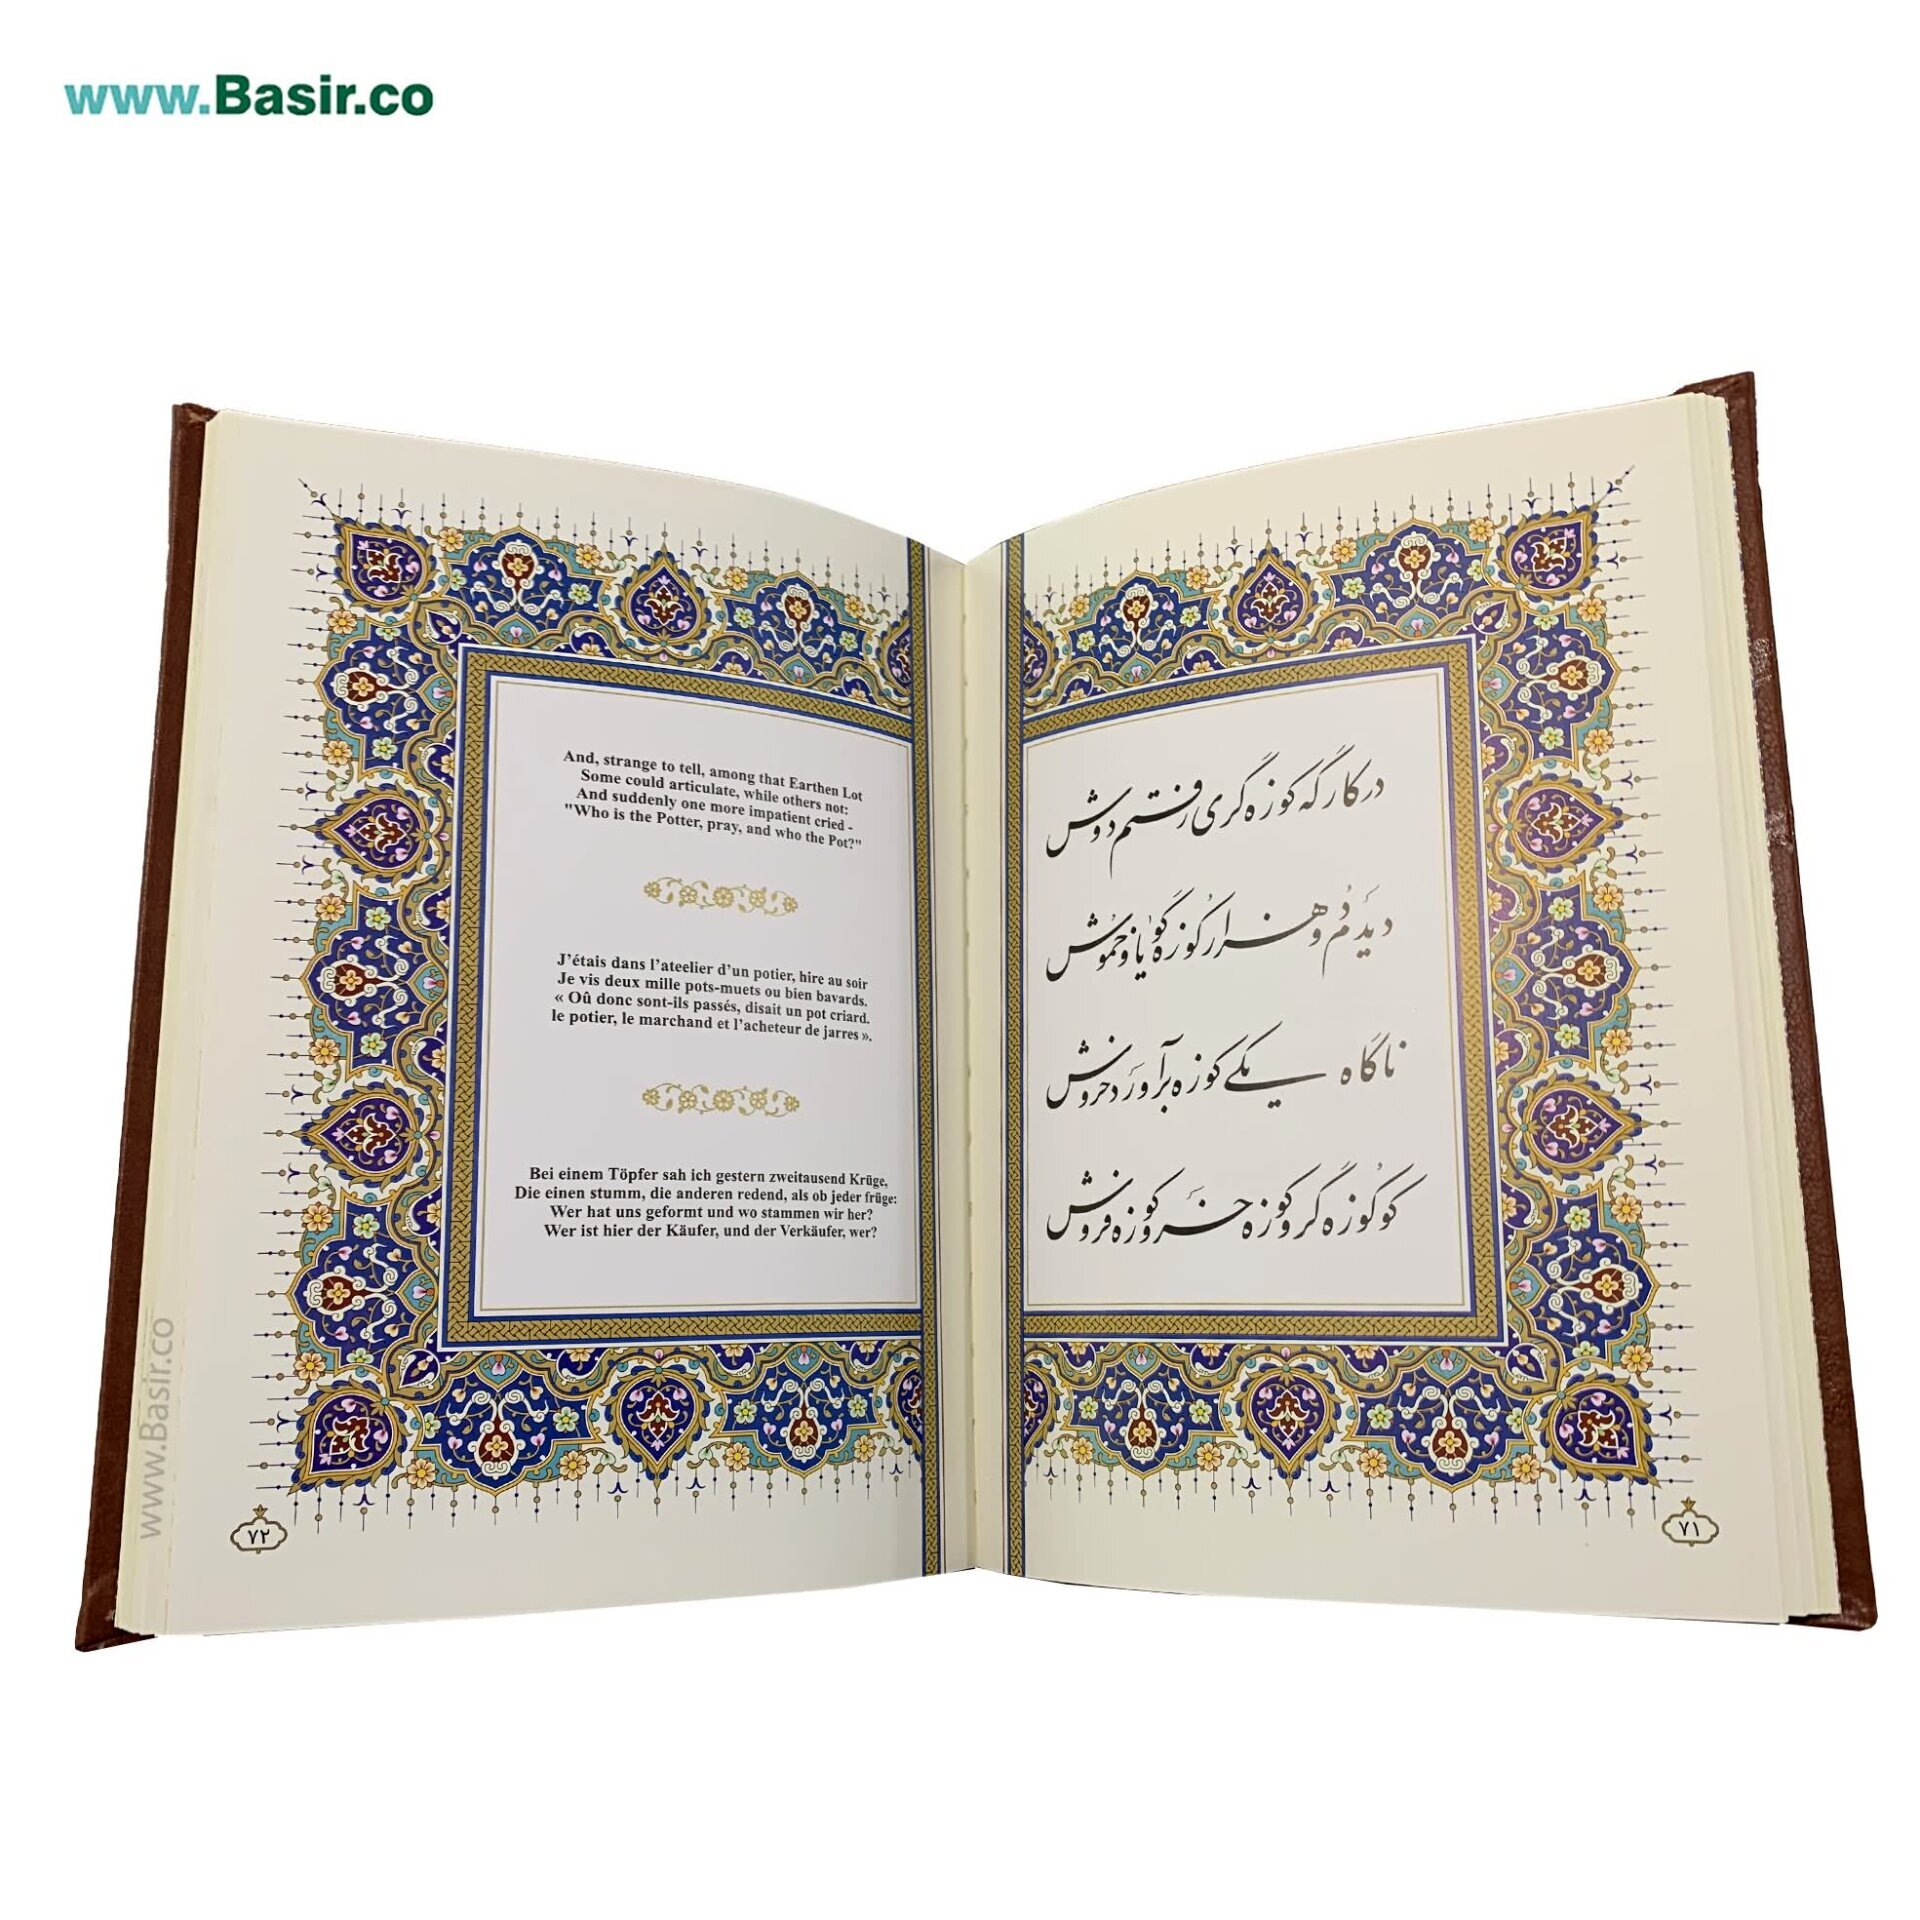 www.Basir.co
در کارگه کوزه گری رفتم دوش
دیدم دو هزار کوزه گویا و خموش
ناگاه یکی کوزه برآورد خروش
کو کوزه گر و کوزه خر و کوزه فروش
۷۱
And, strange to tell, among that Earthen Lot
Some could articulate, while others not:
And suddenly one more impatient cried -
"Who is the Potter, pray, and who the Pot?"
J’étais dans l’ateelier d’un potier, hire au soir
Je vis deux mille pots-muets ou bien bavards.
« Oû donc sont-ils passés, disait un pot criard.
le potier, le marchand et l’acheteur de jarres ».
Bei einem Töpfer sah ich gestern zweitausend Krüge,
Die einen stumm, die anderen redend, als ob jeder früge:
Wer hat uns geformt und wo stammen wir her?
Wer ist hier der Käufer, und der Verkäufer, wer?
۷۲
www.Basir.co